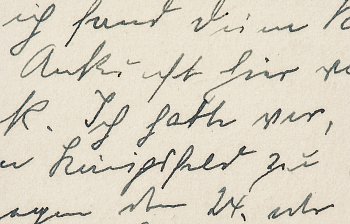 ich fand Deine
Ankunft hier
k. Ich hatte vor,
Königsfeld zu
sagen den 24. oder